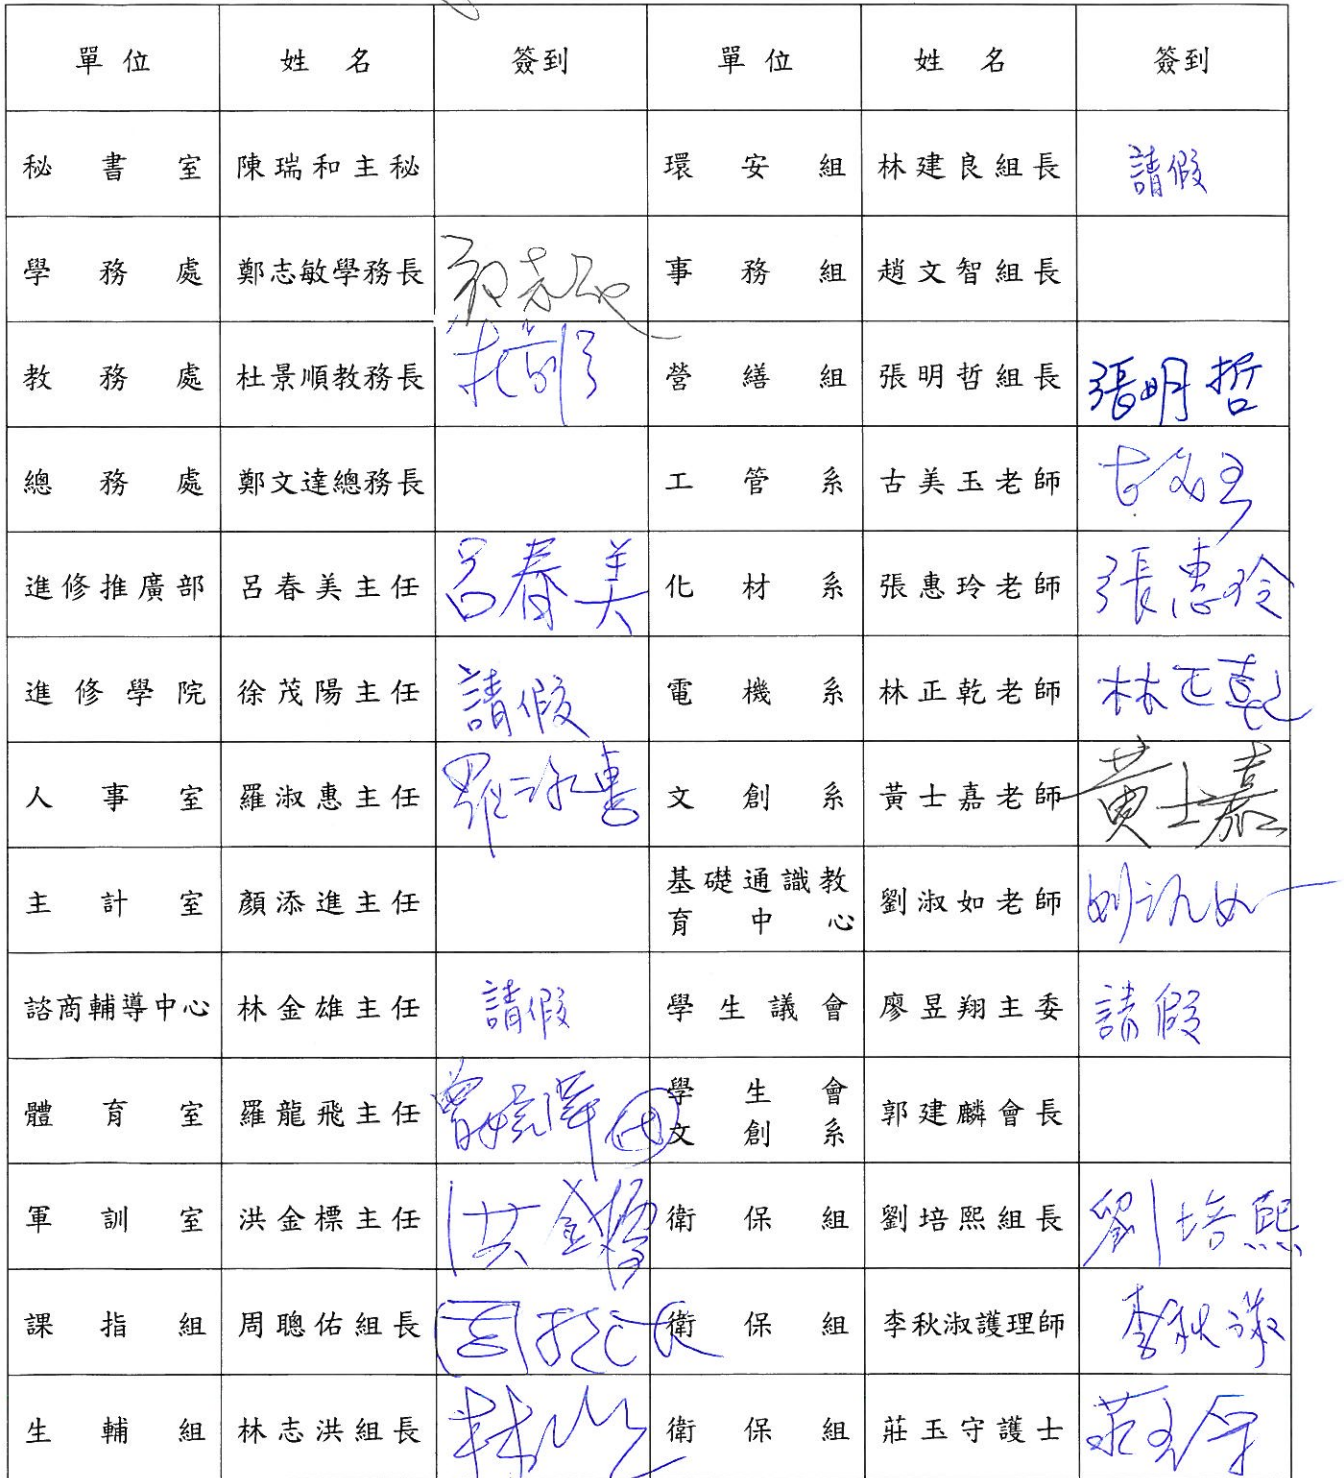 單位 姓名 簽到 單位 姓名 簽到
秘書室 陳瑞和主秘 環安組 林建良組長 請假
學務處 鄭志敏學務長 事務組 趙文智組長
教務處 杜景順教務長 營繕組 張明哲組長 張明哲
總務處 鄭文達總務長 工管系 古美玉老師 古美玉
進修推廣部 呂春美主任 呂春美 化材系 張惠玲老師 張惠玲
進修學院 徐茂陽主任 請假 電機系 林正乾老師 林正乾
人事室 羅淑惠主任 羅淑惠 文創系 黃士嘉老師 黃士嘉
主計室 顏添進主任 基礎通識教 劉淑如老師 劉淑如
育中心
諮商輔導中心 林金雄主任 請假 學生議會 廖昱翔主委 請假
體育室 羅龍飛主任 代 學生會 郭建麟會長
文創系
軍訓室 洪金標主任 洪金標 衛保組 劉培熙組長 劉培熙
課指組 周聰佑組長 衛保組 李秋淑護理師 李秋淑
生輔組 林志洪組長 衛保組 莊玉守護士 莊玉守